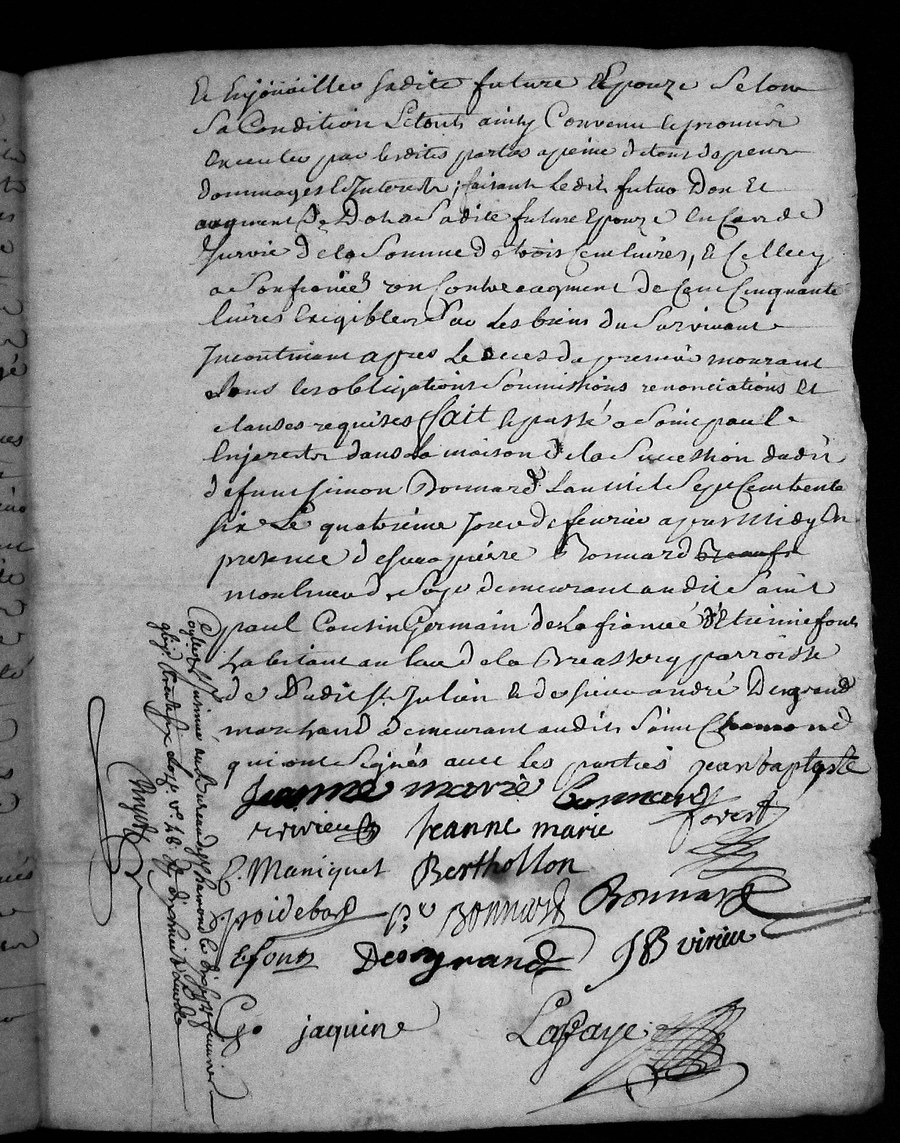 Et Enjoüailler sadite future Epouze Selon
Sa Condition Et tout ainsy Convenu Et promis
Executer par lesdites parties a peine de tous depens
dommages Et Interests, faisant ledit futur Don Et
augment de Dot a Sadite future Epouze En Cas de
Survie de la Somme de trois Cent livres, Et Celle cy
a Son fiancé un Contre augment de Cent Cinquante
livres Exigibles Sur Les biens du Survivant
Incontinant apres Le deces du premier mourant
Sous les obligations Soumissions renonciations Et
clauses requises fait Et passé a Saint paul
En Jarest dans La maison de la Succession dudit
defunt Simon Bonnard Lan mil Sept Cent trente
six Le quatrième Jour de feurier apres Midy En
presence de Sieur pierre Bonnard
moulineur de Soye demeurant audit Saint
paul Cousin Germain de la fiancée Etienne font
habitant au lieu de la Breassery parroisse
de St. Julien Et de Sieur andré Desgrand
marchand demeurant audit Saint Chamond
qui ont Signés auec les parties jean baptiste
jeanne marie bonnard
virieu jeanne marie forest
C. Maniquet Berthollon
poidebard pre BONNARD Bonnard
E font Desgrand JB virieu
jaquine Laffaye
Controllé Et insinué au Bureau de St Chamond le feurier